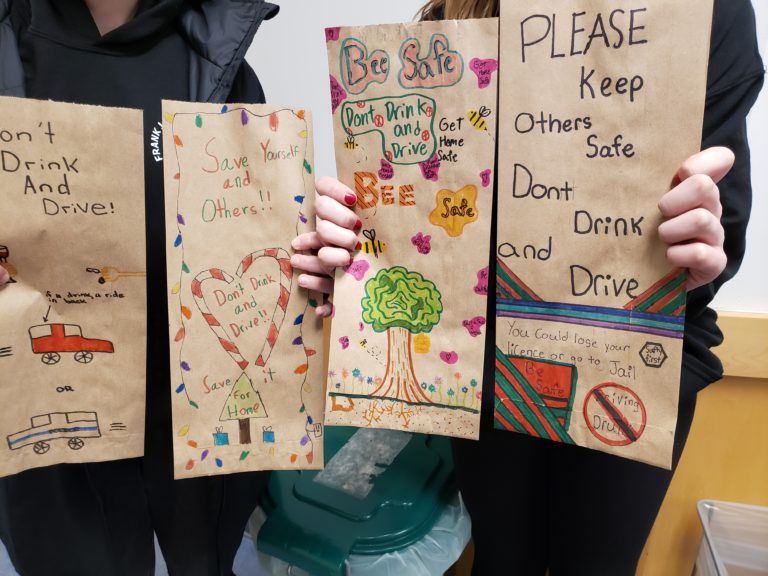 on't
Drink
And
Drive!
a drink, a ride
in back
OR
FRANK
Save Yourself
and
Others!!
Don't Drink
and
Drive!!
Save it
for
Home
Bee Safe
Dont Drink
and
Drive
Get
Home
Safe
BEE
Safe
PLEASE
Keep
Others
Safe
Dont
Drink
and
Drive
You Could lose your
licence or go to Jail
Safety
First
Be
Safe
Driving
Drunk